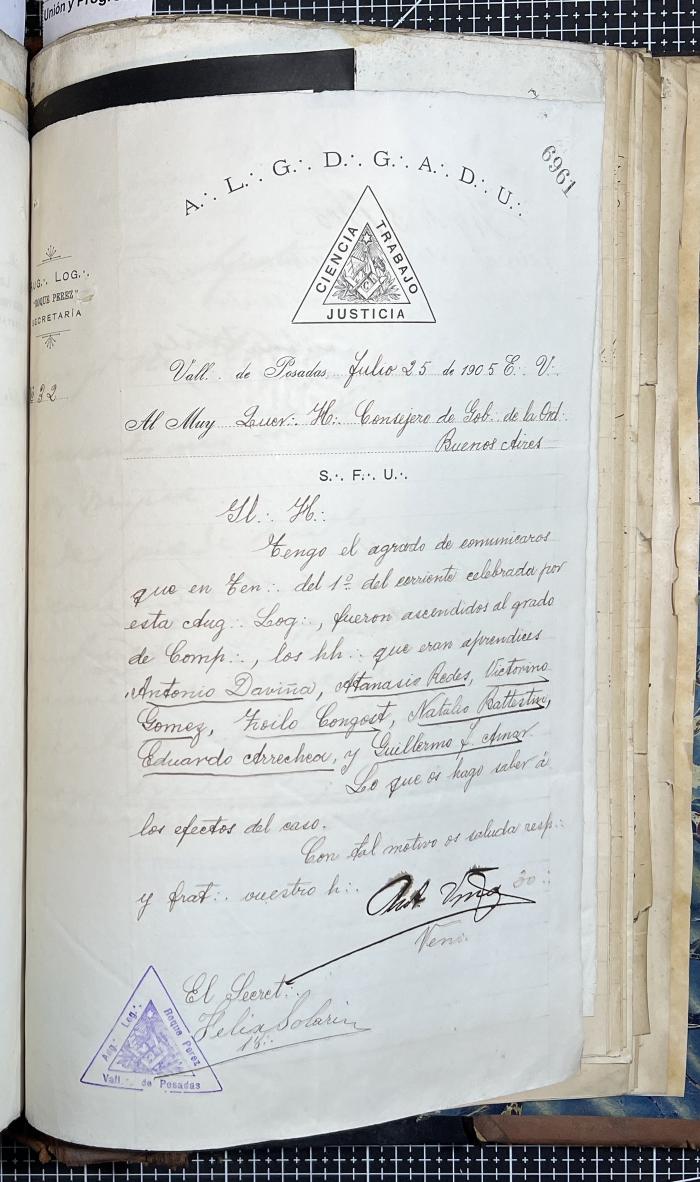 Unión y Progr
6961
A∴ L∴ G∴ D∴ G∴ A∴ D∴ U∴
CIENCIA TRABAJO
JUSTICIA
UG∴ LOG∴
"ROQUE PEREZ"
SECRETARÍA
32
Vall∴ de Posadas, Julio 25 de 1905 E∴ V∴
Al Muy Quer∴ H∴ Consejero de Gob∴ de la Ord∴
Buenos Aires
S∴ F∴ U∴
Il∴ H∴
Tengo el agrado de comunicaros
que en Ten∴ del 1º del corriente celebrada por
esta Aug∴ Log∴, fueron ascendidos al grado
de Comp∴, los hh∴ que eran aprendices
Antonio Daviña, Atanasio Redes, Victorino
Gomez, Zoilo Congost, Natalio Battestini,
Eduardo Arrechea, y Guillermo J. Aınar
Lo que os hago saber á
los efectos del caso.
Con tal motivo os saluda resp∴
y frat∴ vuestro h∴
30∴
Ven∴
El Secret∴
Felix Solarin
18∴
Aug∴ Log∴ Roque Perez
Vall∴ de Posadas